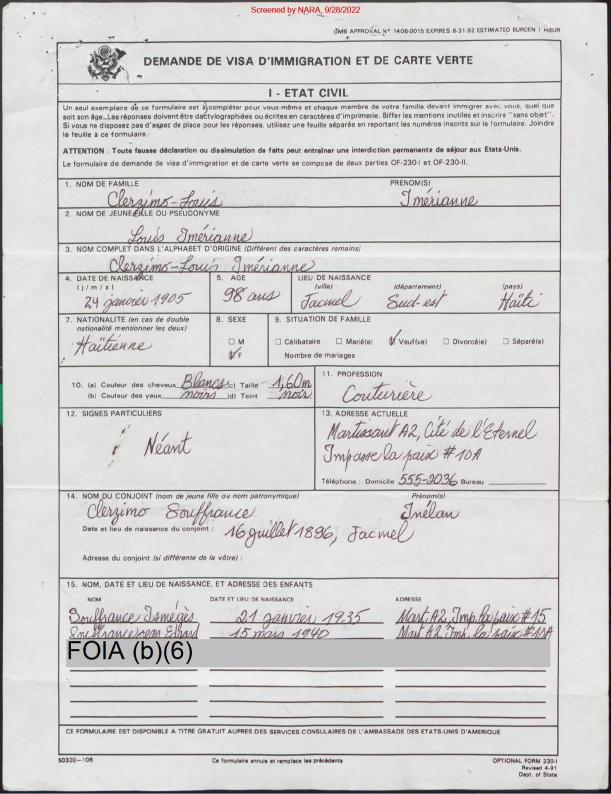 Screened by NARA, 9/28/2022
OMB APPROVAL N° 1406-0015 EXPIRES 8-31-92 ESTIMATED BURDEN 1 HOUR
DEMANDE DE VISA D'IMMIGRATION ET DE CARTE VERTE
I - ETAT CIVIL
Un seul exemplaire de ce formulaire est à compléter pour vous-même et chaque membre de votre famille devant immigrer avec vous, quel que
soit son âge. Les réponses doivent être dactylographiées ou écrites en caractères d'imprimerie. Biffer les mentions inutiles et inscrire "sans objet".
Si vous ne disposez pas d'assez de place pour les réponses, utilisez une feuille séparée en reportant les numéros inscrits sur le formulaire. Joindre
la feuille à ce formulaire.
ATTENTION : Toute fausse déclaration ou dissimulation de faits peut entraîner une interdiction permanente de séjour aux Etats-Unis.
Le formulaire de demande de visa d'immigration et de carte verte se compose de deux parties OF-230-I et OF-230-II.
1. NOM DE FAMILLE PRENOM(S)
Clerzimo-Louis Imérianne
2. NOM DE JEUNE FILLE OU PSEUDONYME
Louis Imérianne
3. NOM COMPLET DANS L'ALPHABET D'ORIGINE (Différent des caractères romains)
Clerzimo-Louis Imérianne
4. DATE DE NAISSANCE 5. AGE LIEU DE NAISSANCE
(j / m / a) (ville) (département) (pays)
24 janvier 1905 98 ans Jacmel Sud-est Haïti
7. NATIONALITE (en cas de double 8. SEXE 9. SITUATION DE FAMILLE
nationalité mentionner les deux)
Haïtienne M Célibataire Marié(e) Veuf(ve) Divorcé(e) Séparé(e)
F Nombre de mariages
10. (a) Couleur des cheveux Blancs (c) Taille 1,60m 11. PROFESSION
(b) Couleur des yeux noirs (d) Teint noir Couturière
12. SIGNES PARTICULIERS 13. ADRESSE ACTUELLE
Néant Martissant A2, Cité de l'Eternel
Impasse la paix # 10A
Téléphone : Domicile 555-2036 Bureau
14. NOM DU CONJOINT (nom de jeune fille ou nom patronymique) Prénom(s)
Clerzimo Souffrance Inélan
Date et lieu de naissance du conjoint : 16 juillet 1896, Jacmel
Adresse du conjoint (si différente de la vôtre) :
15. NOM, DATE ET LIEU DE NAISSANCE, ET ADRESSE DES ENFANTS
NOM DATE ET LIEU DE NAISSANCE ADRESSE
Souffrance Ismégès 21 janvier 1935 Mart. A2, Imp. la paix # 15
Souffrance 15 mars 1940 Mart A2, Imp. la paix # 10A
FOIA (b)(6)
CE FORMULAIRE EST DISPONIBLE A TITRE GRATUIT AUPRES DES SERVICES CONSULAIRES DE L'AMBASSADE DES ETATS-UNIS D'AMERIQUE
50320-106 Ce formulaire annule et remplace les précédents OPTIONAL FORM 230-I
Revised 4-91
Dept. of State